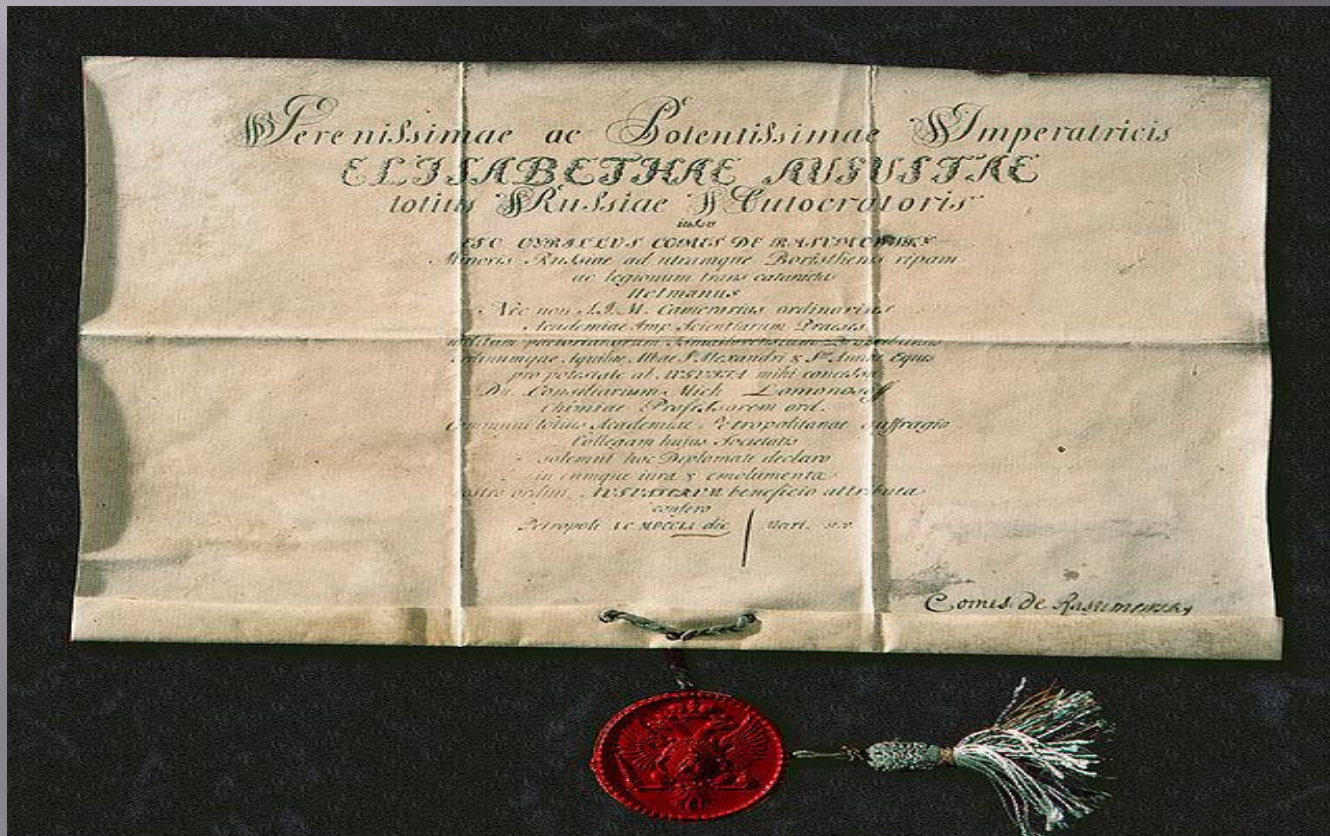 Serenissimae ac Potentissimae Imperatricis
ELISABETHAE AUGUSTAE
totius Russiae Autocratoris
iussu
EGO CYRILLUS COMES DE RASUMOWSKY
Minoris Russiae ad utramque Boristhenis ripam
ac legionum trans cataractas
Hetmanus
Nec non S.I.M. Camerarius ordinarius
Academiae Imp Scientiarum Praeses
Ordinumque Aquilae Albae S. Alexandri & S. Annae Eques
pro potestate ab AUGUSTA mihi concessa
Dn Consiliarium Mich Lomonosoff
Chimiae Professorem ord.
Communi totius Academiae Petropolitanae suffragio
Collegam huius Societatis
solemni hoc Deplomate declaro
in eumque iura & emolumenta
nostro ordini AUGUSTARUM beneficio attributa
confero
Petropoli die Mart.
Comes de Rasumowsky